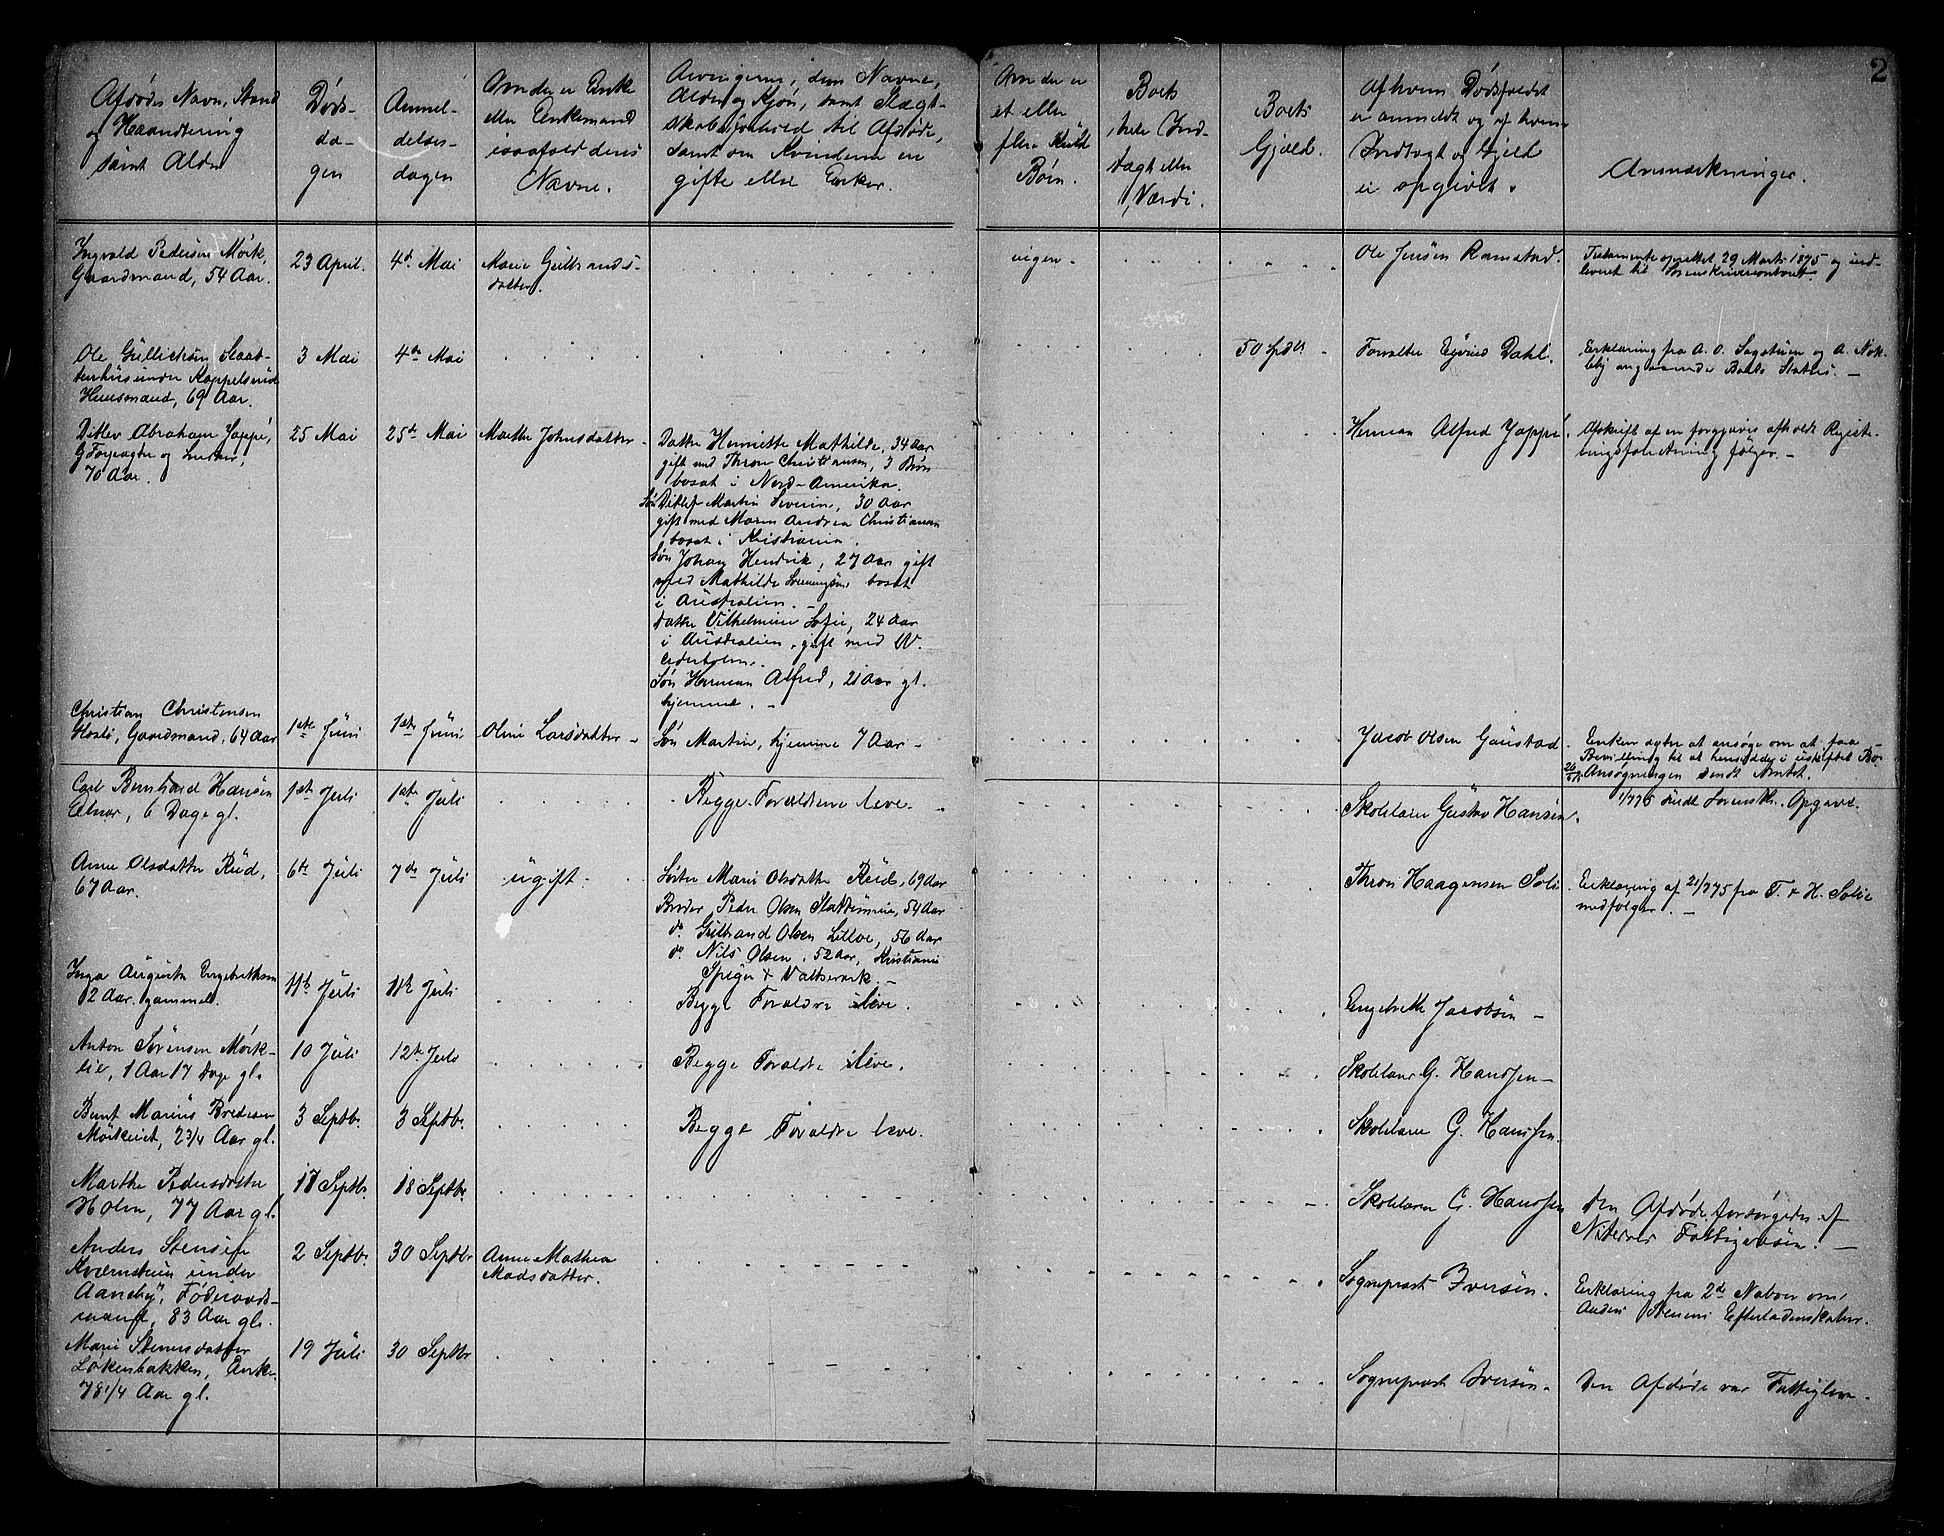 2
Afdødes Navn, Stand
og Haandtering
samt Alder
Døds-
da-
gen
Anmel-
delses-
dagen
Om der er Enke
eller Enkemand
isaafald deres
Navne.
Arvingerne, deres Navne,
Alder og Kjøn, samt Slægt-
skabsforhold til Afdøde,
samt om Kvinderne er
gifte eller Enker.
Om der er
et eller
flere Kuld
Børn.
Boets
hele Ind-
tægt eller
Værdi.
Boets
Gjæld.
Af hvem Dødsfaldet
er anmeldt og af hvem
Indtægt og Gjæld
er opgivet.
Anmærkninger.
Ingvald Pedersen Mørk,
Gaardmand, 54 Aar.
23 April.
4de Mai
Marie Gulbrands-
datter.
ingen
Ole Jensen Ramstad.
Testamente oprettet 29 Marts 1875 og ind-
leveret til Sorenskriverkontoret.
Ole Gulliksen
under
Huusmand, 69 Aar.
3 Mai
4de Mai
50 Spdlr
Forvalter Eivind Dahl.
Erklæring fra A. O. Sagstuen og A. Nok-
leby angaaende Boets Status. —
Ditlev Abraham Jappé,
Forpagter og
70 Aar.
25 Mai
25de Mai
Marthe Johnsdatter
Datter Henriette Mathilde, 34 Aar
gift med Thron Christiansen, 3 Børn
bosat i Nord-Amerika.
Søn Ditlef Martin Severin, 30 Aar
gift med Maren Andrea Christiansen
bosat i Kristiania.
Søn Johan Hendrik, 27 Aar gift
med Mathilde bosat
i Australien. —
Datter Vilhelmine Sofie, 24 Aar
i Australien, gift med W.
Cederholm.
Søn Herman Alfred, 21 Aar gl.
hjemme. —
Herman Alfred Jappé.
Afskrift af en forgjæves afholdt Registe-
ringsforretning følger. —
Christian Christensen
Gaardmand, 64 Aar
1ste Juni
1ste Juni
Oline Larsdatter —
Søn Martin, hjemme 7 Aar —
Jacob Olsen Gaustad
Enken agter at ansøge om at faa
Bevilling til at hensidde i uskiftet Bo
Ansøgningen sendt Amtet.
Carl Bernhard Hansen
Elnæs, 6 Dage gl.
1ste Juli
1ste Juli
Begge Forældrene leve.
Skolelærer Gustav Hansen.
1/7 75 sendt Sorenskr. Opgave.
Anne Olsdatter Rud,
67 Aar.
6te Juli
7de Juli
ugift.
Søster Marie Olsdatter Rud, 69 Aar
Broder Peder Olsen Slattumeie, 54 Aar
do Gulbrand Olsen Lilloe, 56 Aar
do Nils Olsen, 52 Aar, Kristiania
Spiger & Valseværk. —
Thron Haagensen Solie
Erklæring af 21/7 75 fra T. & H. Solie
medfølger. —
Inga Augusta Engebrethsen
12 Aar gammel.
11te Juli
11te Juli
Begge Forældre ilive.
Engebreth Jacobsen —
Anton Sørensen Mørk-
lie, 1 Aar 17 Dage gl.
10 Juli
12te Juli
Begge Forældre ilive.
Skolelærer G. Hanssen —
Bernt Marius Bredesen
Mørkeiet, 2 3/4 Aar gl.
3 Septbr.
3 Septbr.
Begge Forældre leve.
Skolelærer G. Hanssen.
Marthe Pedersdatter
Holm, 77 Aar gl.
17 Septbr.
18 Septbr.
Skolelærer G. Hanssen
Den Afdøde forsørgedes af
Fattigvæsen. —
Anders Stensen
Kværnstuen under
Aaneby, Føderaads-
mand, 83 Aar gl.
2 Septbr.
30 Septbr
Anne Mathea
Madsdatter.
Sogneprest Iversen.
Erklæring fra 2de Naboer om
Anders Stensens Efterladenskaber.
Mari Stensdatter
Løkenbakken, Enke
78 1/4 Aar gl.
19 Juli
30 Septbr
Sogneprest Iversen.
Den Afdøde var Fattiglem.